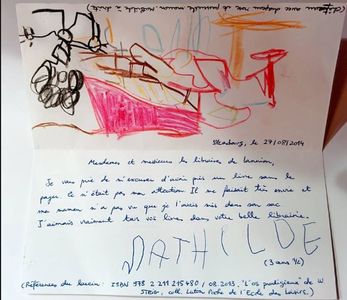 Strasbourg, le 27/08/2014
Mesdames et messieurs les libraires de
Je vous prie de m'excuser d'avoir pris un livre sans le
payer. Ce n'était pas mon attention. Il me faisait très envie et
ma maman n'a pas vu que je l'avais mis dans son sac.
J'aimais vraiment tous vos livres dans votre belle librairie.
MATHILDE
(3 ans ½)
(Références du larcin: ISBN 978 2 211 215480 / 08.2013, "L'os prodigieux" de W
STEIG, coll. Lutin Poche de l'Ecole des Loisirs)